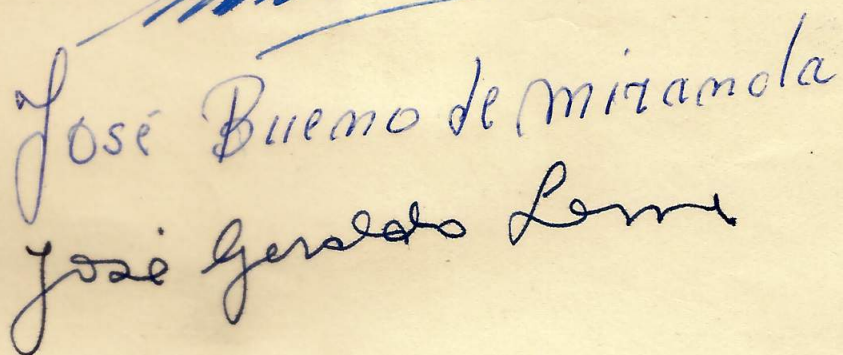 José Bueno de Miranda
José Geraldo Leme